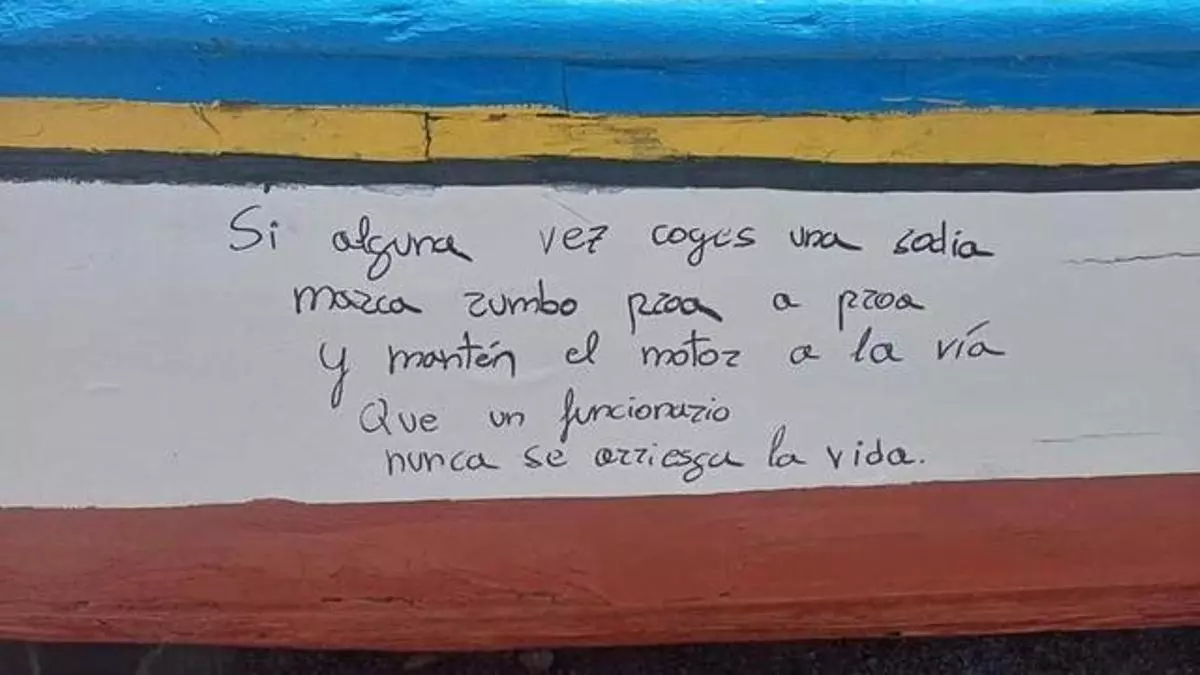 Si alguna vez coges una sodia
marca rumbo proa a proa
y mantén el motor a la vía
Que un funcionario
nunca se arriesga la vida.